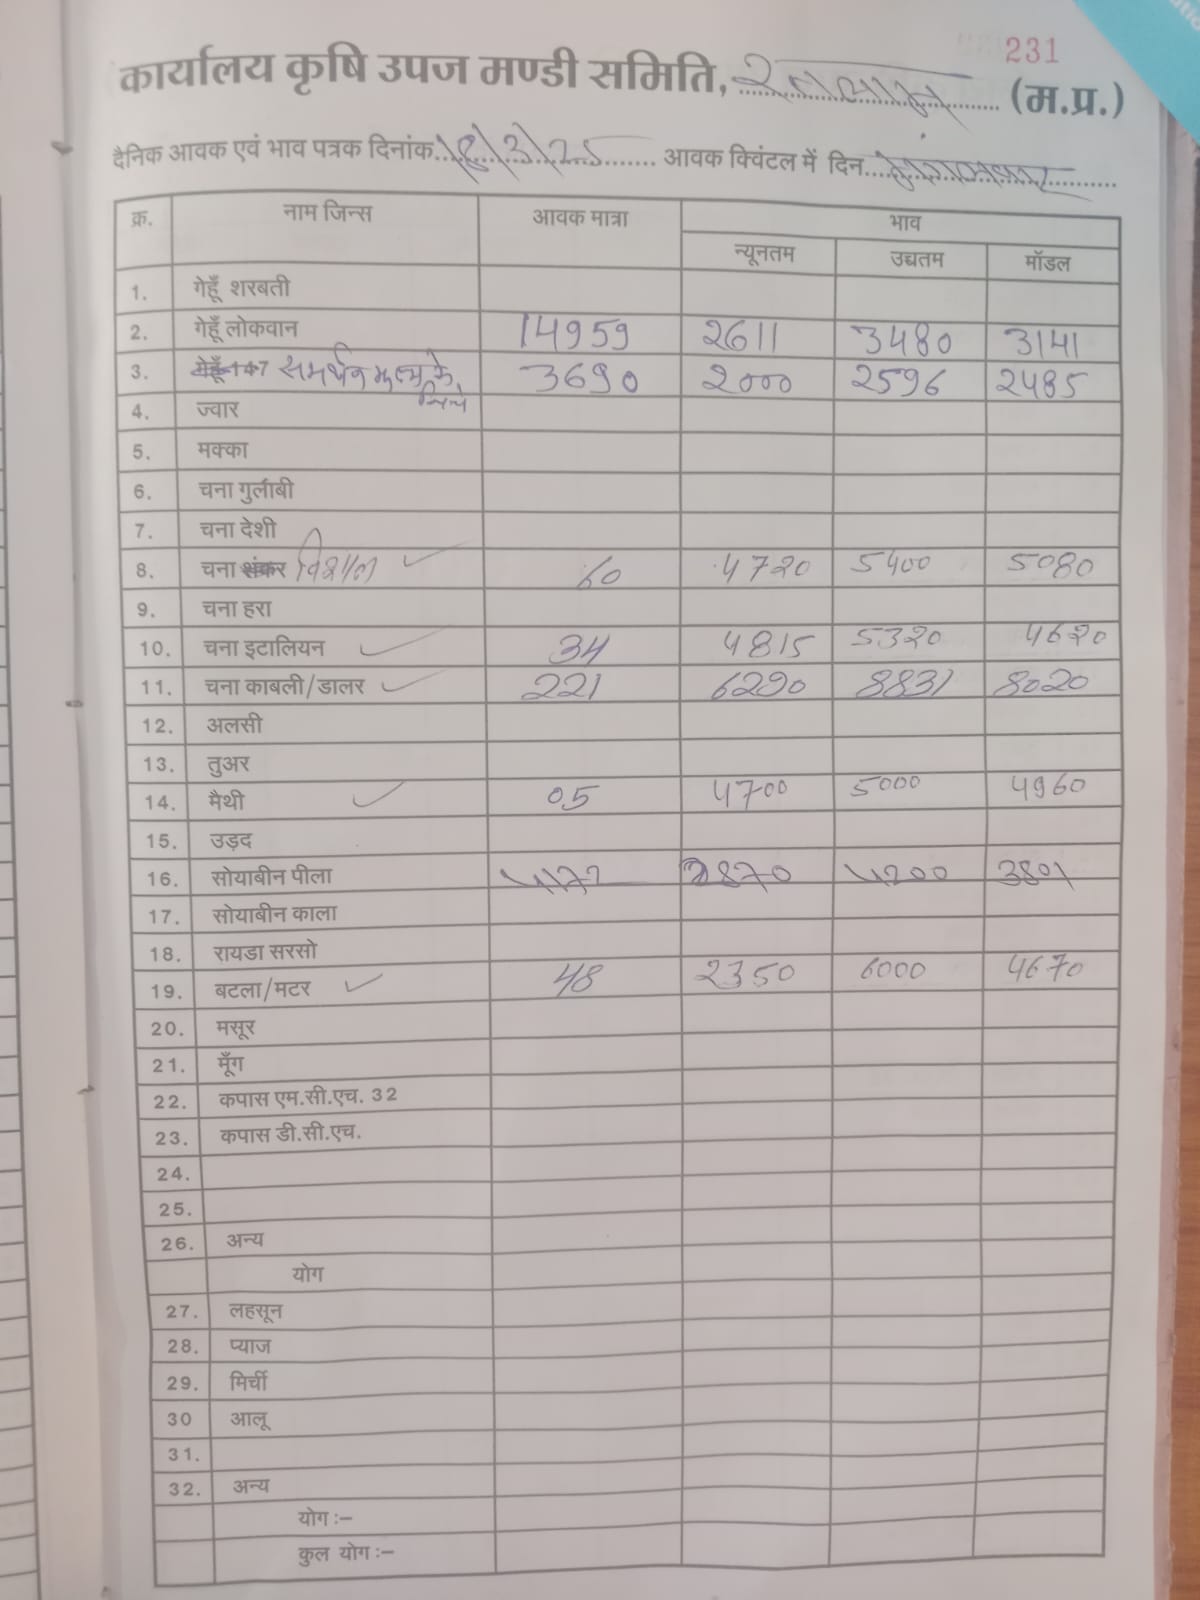 231
कार्यालय कृषि उपज मण्डी समिति, रतलाम (म.प्र.)
दैनिक आवक एवं भाव पत्रक दिनांक 18/3/25 आवक क्विंटल में दिन मंगलवार
क्र. नाम जिन्स आवक मात्रा भाव
न्यूनतम उच्चतम मॉडल
1. गेहूँ शरबती
2. गेहूँ लोकवान 14959 2611 3480 3141
3. गेहूँ 147 समर्थन मूल्य के नीचे 3690 2000 2596 2485
4. ज्वार
5. मक्का
6. चना गुलाबी
7. चना देशी
8. चना शंकर विशाल 60 4720 5400 5080
9. चना हरा
10. चना इटालियन 34 4815 5320 4620
11. चना काबली/डालर 221 6290 8831 8020
12. अलसी
13. तुअर
14. मैथी 05 4700 5000 4960
15. उड़द
16. सोयाबीन पीला 4172 2870 4200 3801
17. सोयाबीन काला
18. रायडा सरसो
19. बटला/मटर 48 2350 6000 4670
20. मसूर
21. मूँग
22. कपास एम.सी.एच. 32
23. कपास डी.सी.एच.
24.
25.
26. अन्य
योग
27. लहसून
28. प्याज
29. मिर्ची
30 आलू
31.
32. अन्य
योग :–
कुल योग :–